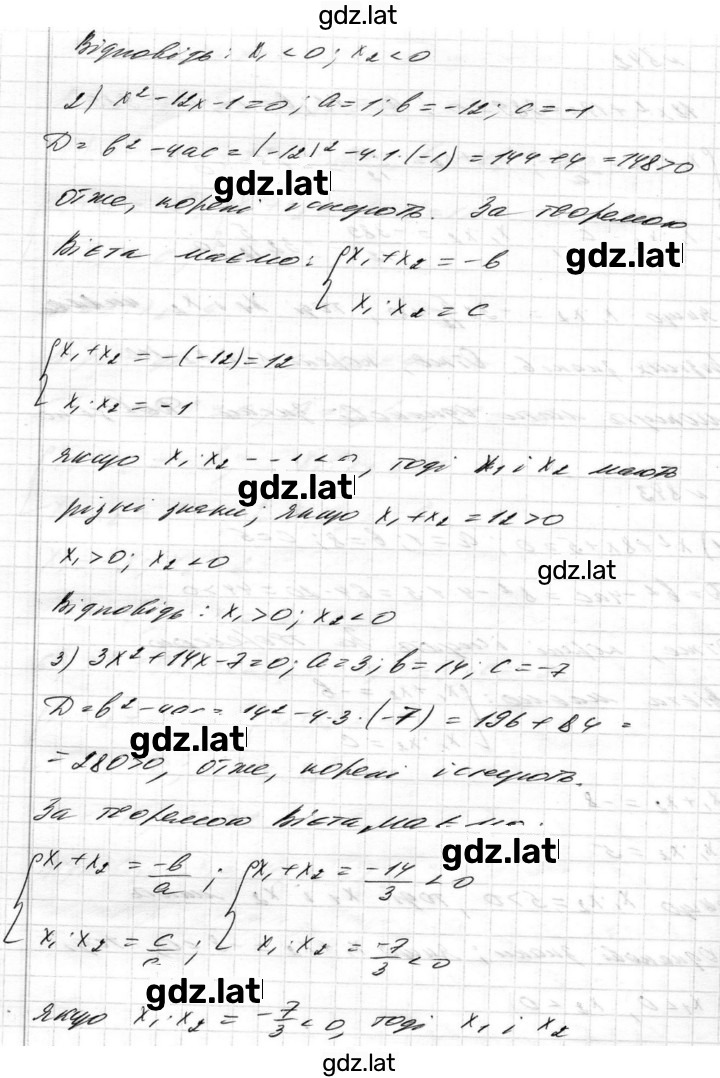 gdz.lat
Відповідь: x₁ < 0; x₂ < 0
2) x² - 12x - 1 = 0; a = 1; b = -12; c = -1
D = b² - 4ac = (-12)² - 4·1·(-1) = 144 + 4 = 148 > 0
gdz.lat
отже, корені існують. За теоремою
Вієта маємо: { x₁ + x₂ = -b
gdz.lat
x₁ · x₂ = c
{ x₁ + x₂ = -(-12) = 12
x₁ · x₂ = -1
якщо x₁ · x₂ = -1 < 0, тоді x₁ і x₂ мають
gdz.lat
різні знаки; якщо x₁ + x₂ = 12 > 0
x₁ > 0; x₂ < 0
gdz.lat
Відповідь: x₁ > 0; x₂ < 0
3) 3x² + 14x - 7 = 0; a = 3; b = 14; c = -7
D = b² - 4ac = 14² - 4·3·(-7) = 196 + 84 =
gdz.lat
= 280 > 0, отже, корені існують.
За теоремою Вієта маємо:
gdz.lat
{ x₁ + x₂ = -b/a; { x₁ + x₂ = -14/3 < 0
x₁ · x₂ = c/a; x₁ · x₂ = -7/3 < 0
gdz.lat
якщо x₁ · x₂ = -7/3 < 0, тоді x₁ і x₂
gdz.lat